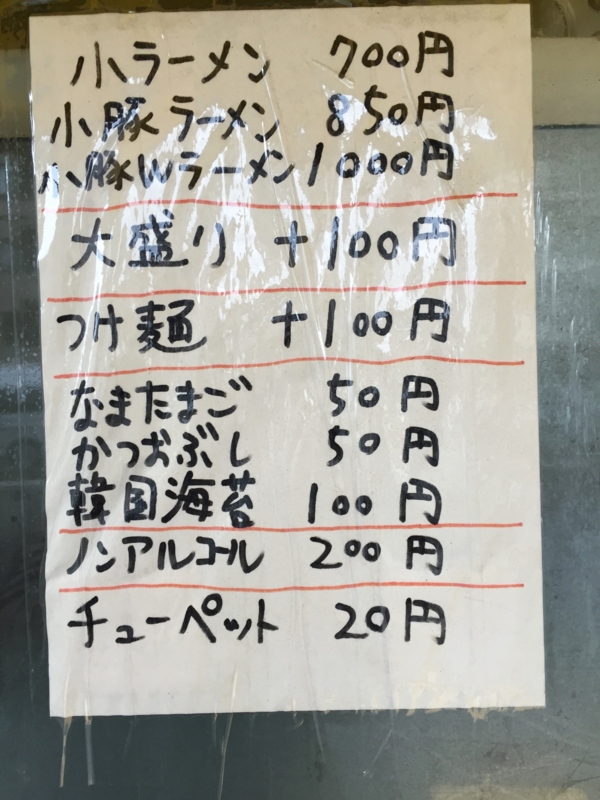 小ラーメン 700円
小豚ラーメン 850円
小豚Wラーメン 1000円
大盛り +100円
つけ麺 +100円
なまたまご 50円
かつおぶし 50円
韓国海苔 100円
ノンアルコール 200円
チューペット 20円